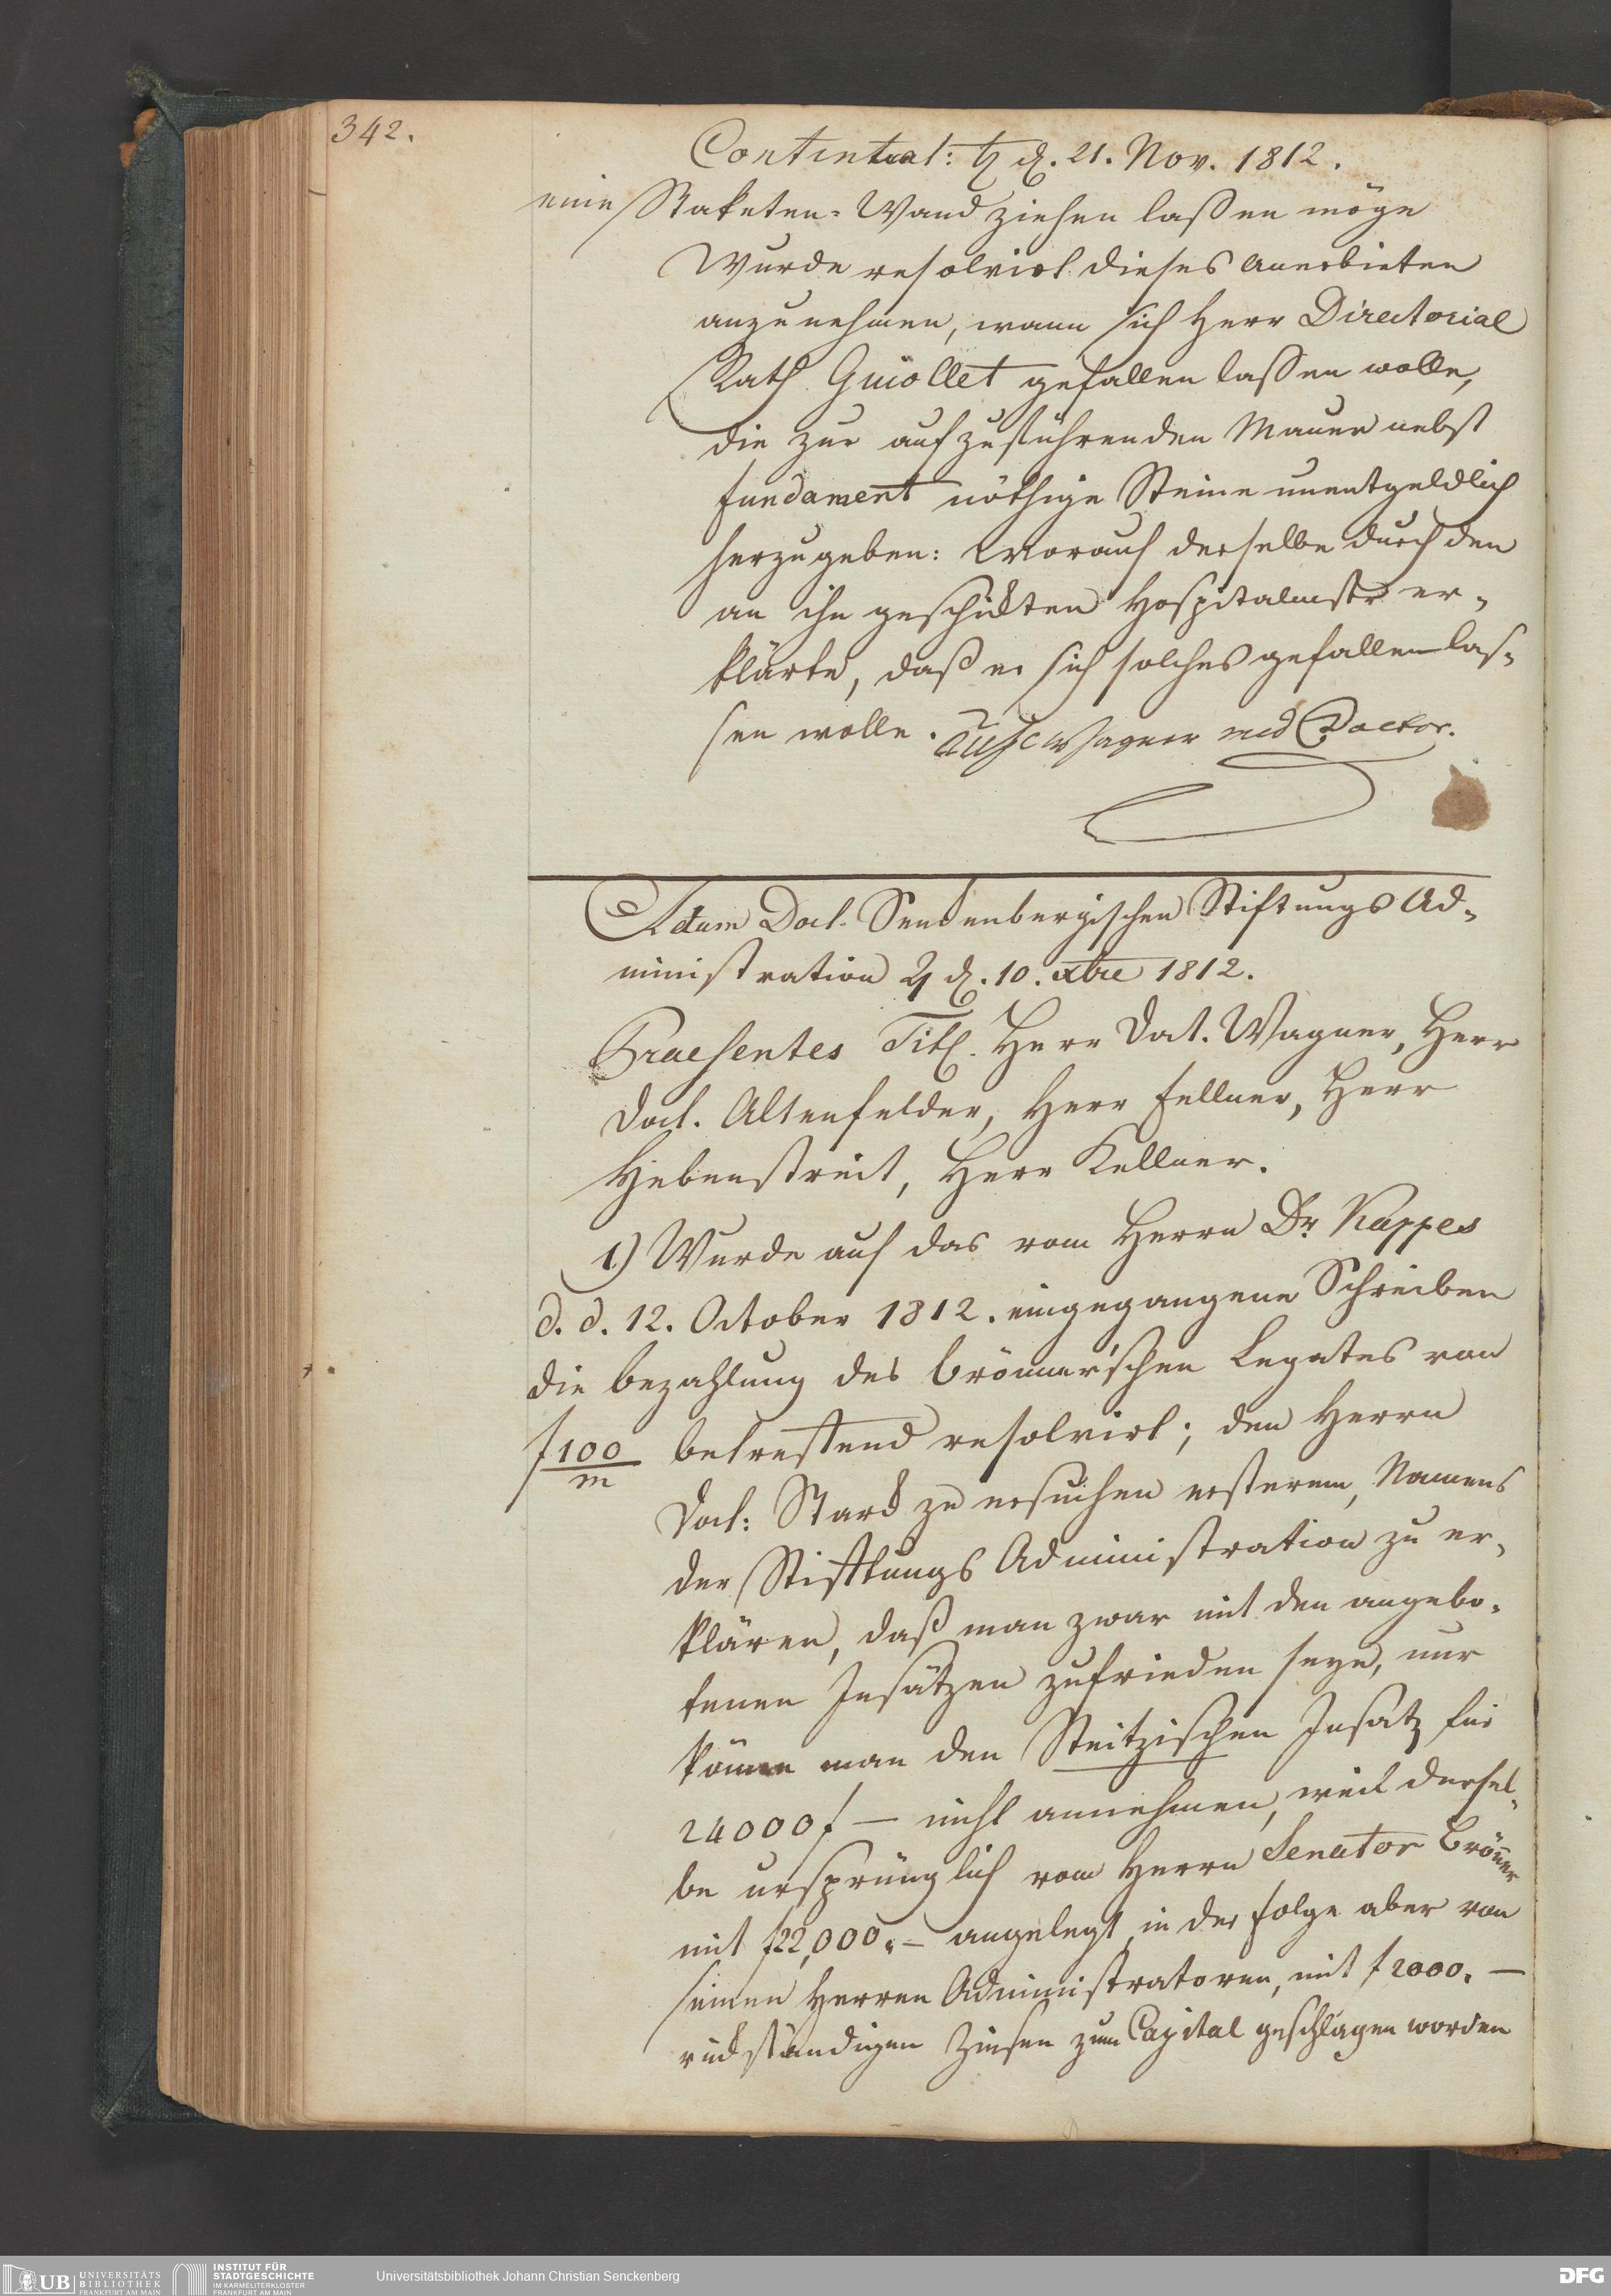 342.
Continuat: ♄ d. 21. Nov. 1812.
eine Staketen-Wand ziehen lassen möge
Wurde resolvirt dieses Anerbieten
anzunehmen, wann sich Herr Directorial
Rath Guiollet gefallen lassen wolle,
die zur aufzuführenden Mauer nebst
Fundament nöthige Steine unentgeldlich
herzugeben: Worauf derselbe durch den
an ihn geschickten Hospitalmstr er-
klärte, daß er sich solches gefallen las-
sen wolle. Wagner med Doctor.
Actum Doct. Senckenbergischen Stiftungs Ad-
ministration ♃ d. 10. xbre 1812.
Praesentes Titl. Herr Doct. Wagner, Herr
Doct. Altenfelder, Herr Fellner, Herr
Hebenstreit, Herr Kellner.
1) Wurde auf das vom Herrn Dr. Kappes
d. d. 12. October 1812. eingegangene Schreiben
die Bezahlung des Brönner'schen Legates von
f 100/m betreffend resolvirt; den Herrn
Doct: Starck zu ersuchen ersterem, Namens
der Stifftungs Administration zu er-
klären, daß man zwar mit den angebo-
tenen Insätzen zufrieden seye, nur
könne man den Steitzischen Insatz für
24000 f — nicht annehmen, weil dersel-
be ursprünglich vom Herrn Senator Brönner
mit f 22,000.- angelegt, in der Folge aber von
seinen Herren Administratoren, mit f 2000. —
rückständigen Zinsen zum Capital geschlagen worden
UB UNIVERSITÄTS
BIBLIOTHEK
FRANKFURT AM MAIN
INSTITUT FÜR
STADTGESCHICHTE
IM KARMELITERKLOSTER
FRANKFURT AM MAIN
Universitätsbibliothek Johann Christian Senckenberg
DFG